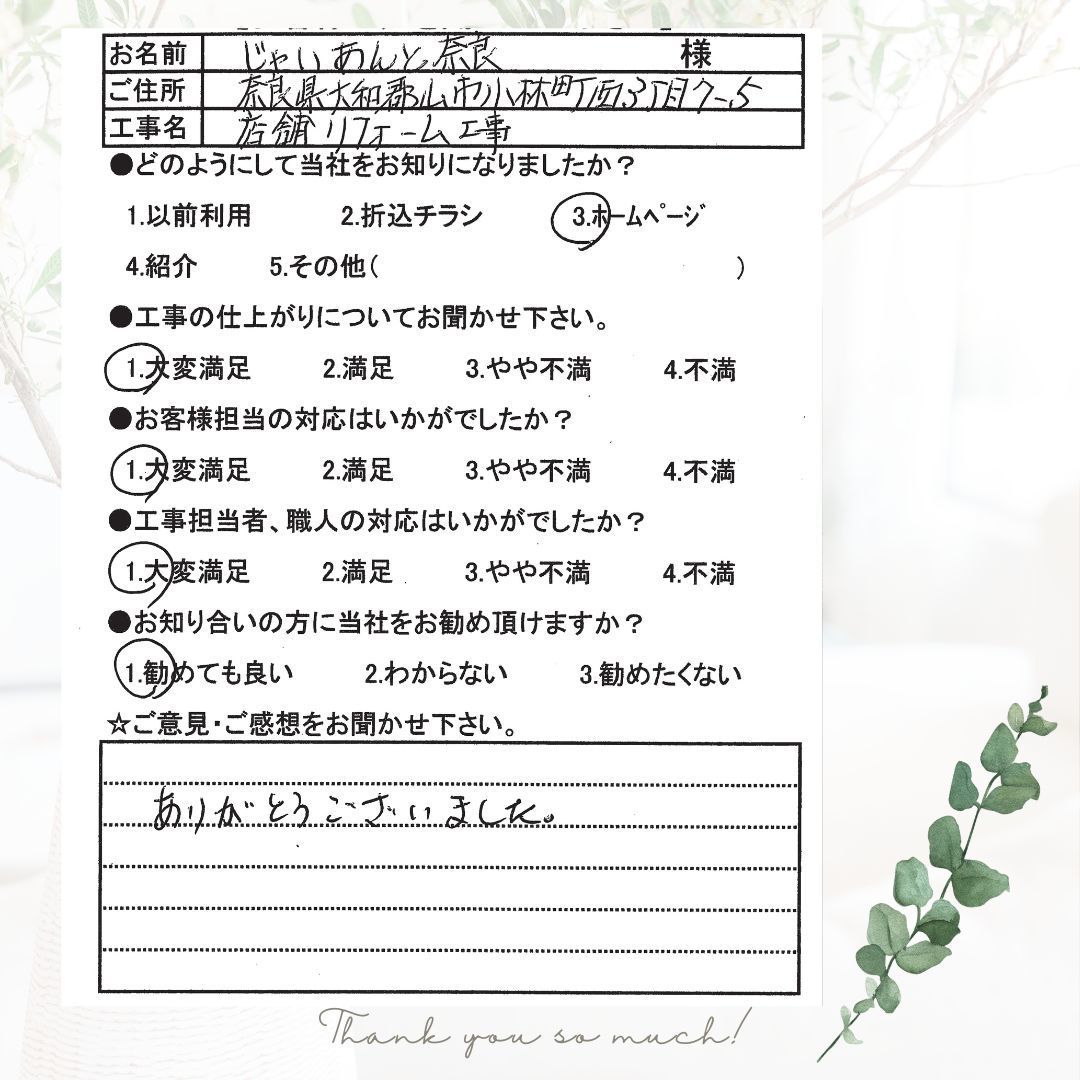 お名前 じゃいあんと奈良 様
ご住所 奈良県大和郡山市小林町西3丁目7-5
工事名 店舗リフォーム工事
●どのようにして当社をお知りになりましたか？
1.以前利用 2.折込チラシ 3.ホームページ
4.紹介 5.その他( )
●工事の仕上がりについてお聞かせ下さい。
1.大変満足 2.満足 3.やや不満 4.不満
●お客様担当の対応はいかがでしたか？
1.大変満足 2.満足 3.やや不満 4.不満
●工事担当者、職人の対応はいかがでしたか？
1.大変満足 2.満足 3.やや不満 4.不満
●お知り合いの方に当社をお勧め頂けますか？
1.勧めても良い 2.わからない 3.勧めたくない
☆ご意見・ご感想をお聞かせ下さい。
ありがとうございました。
Thank you so much!